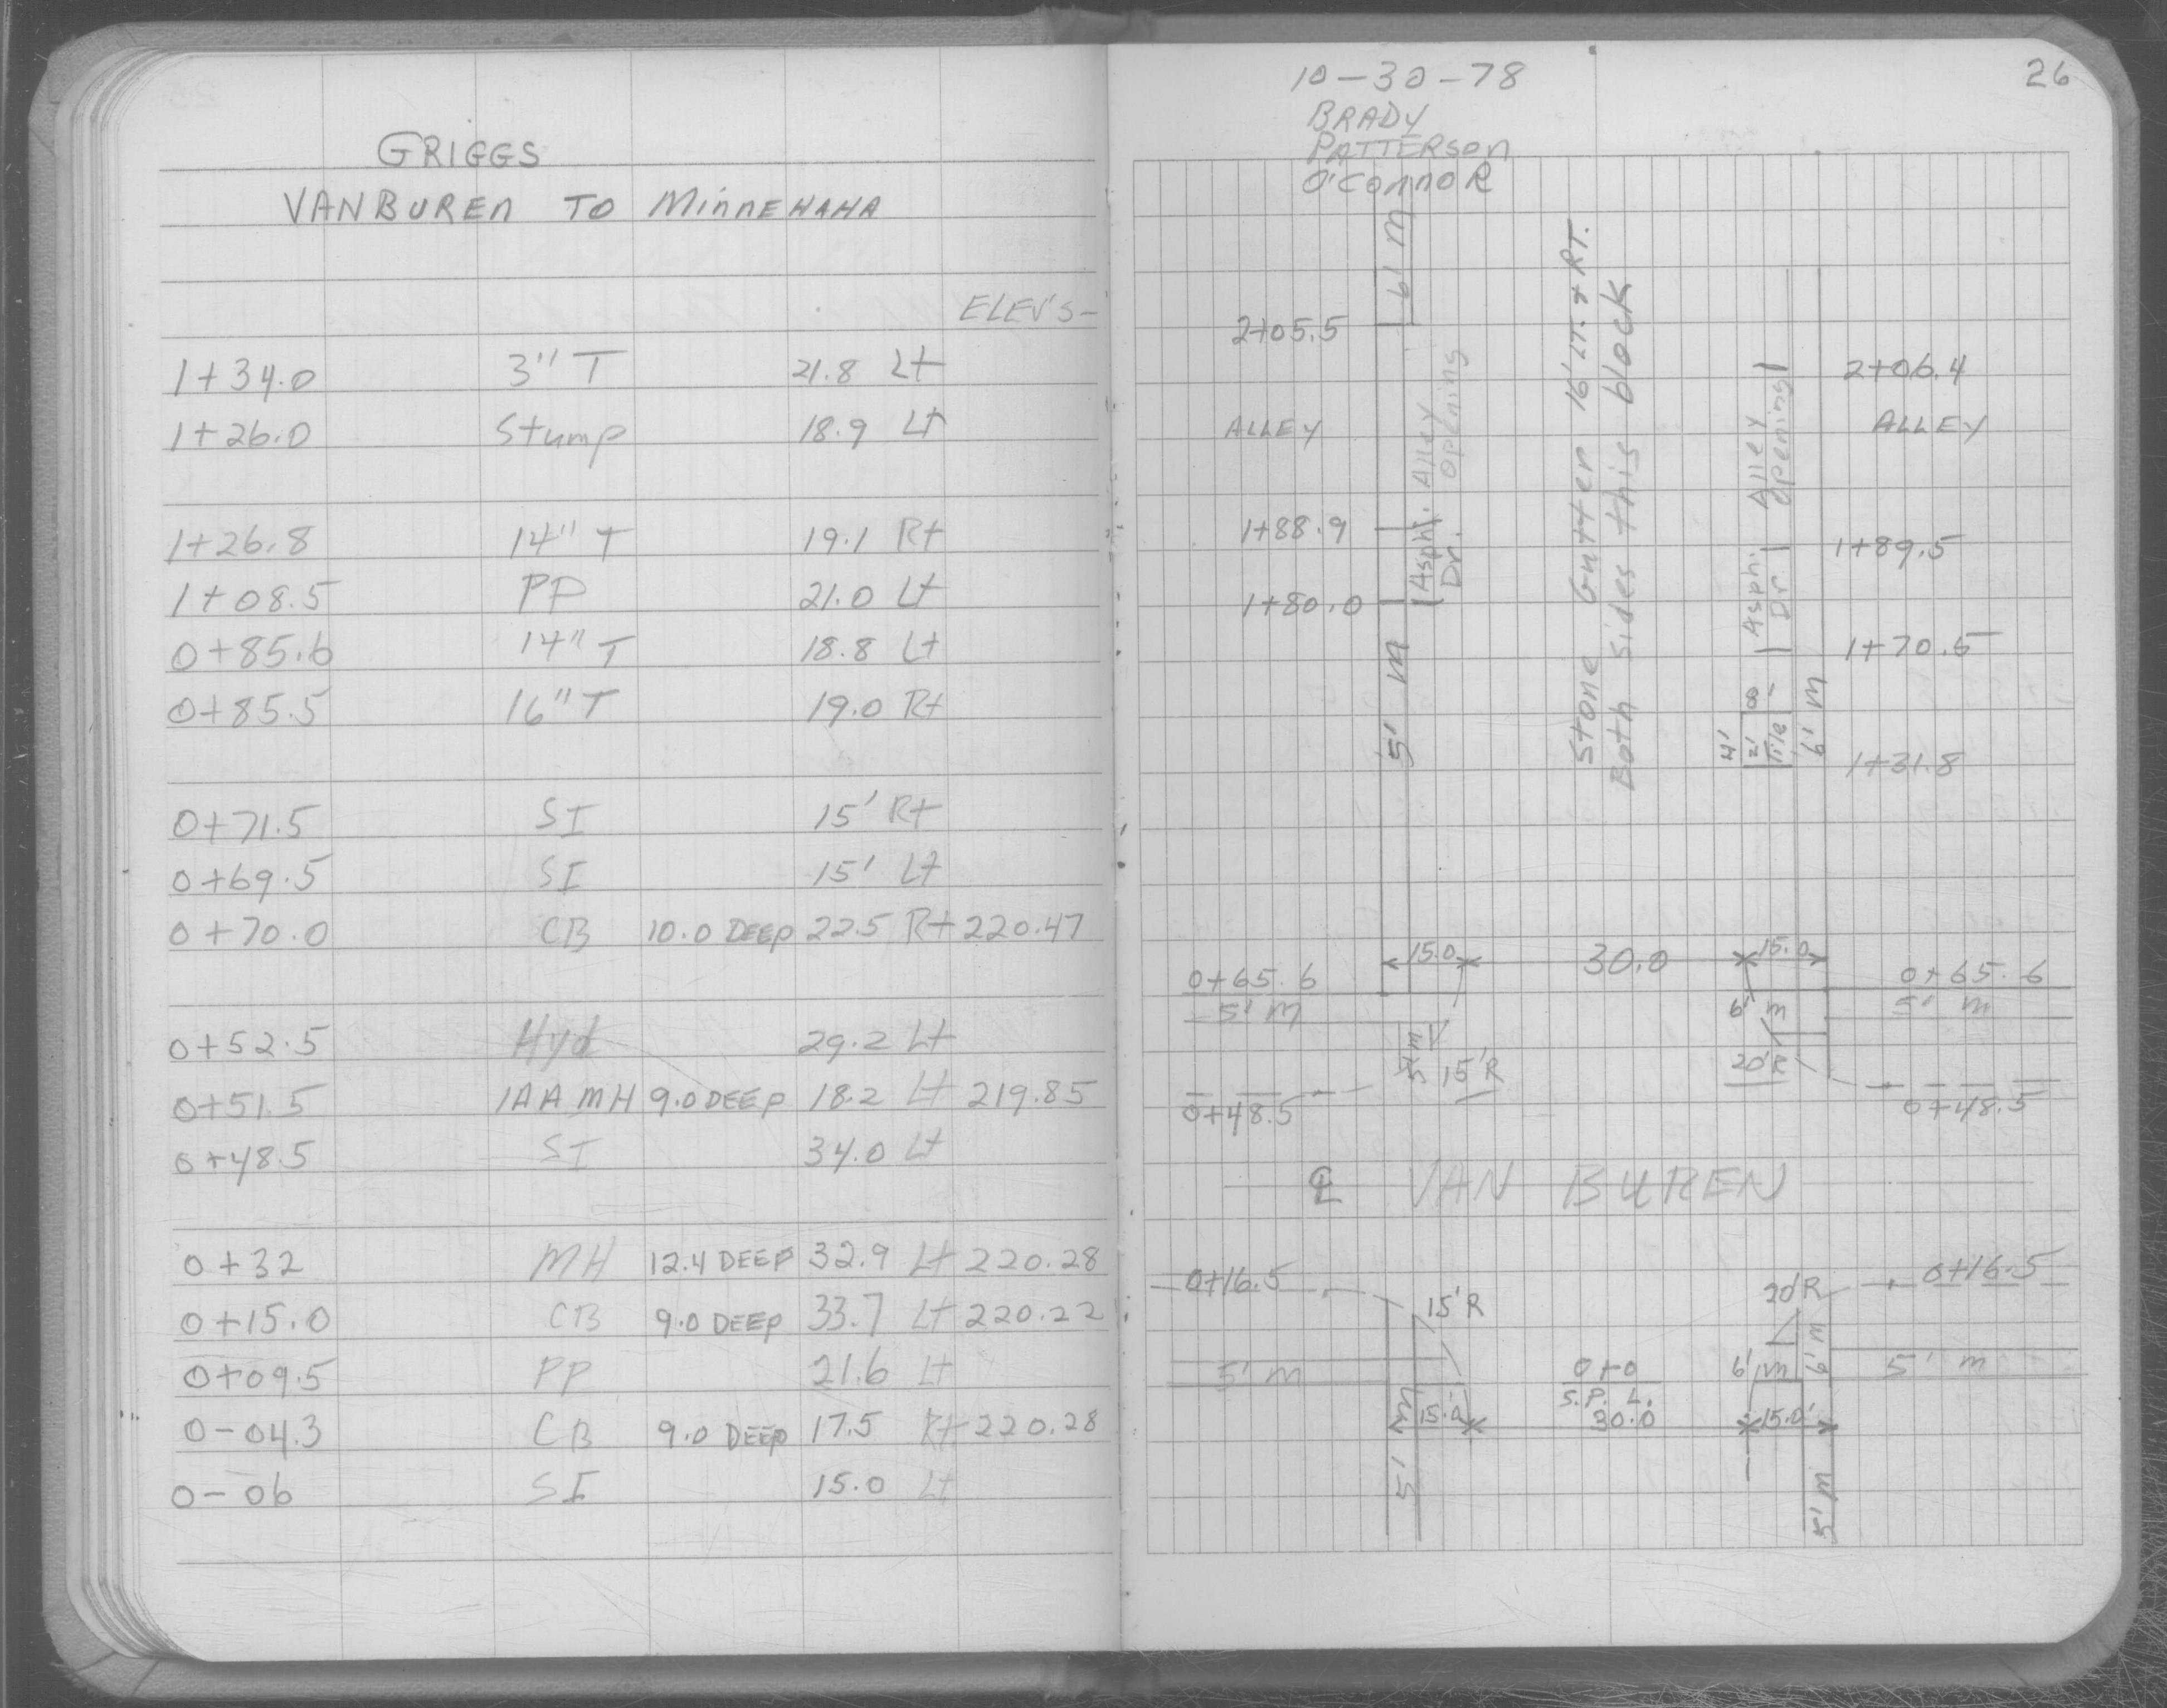 GRIGGS
VANBUREN TO MINNEHAHA
ELEV'S-
1+34.0 3" T 21.8 Lt
1+26.0 Stump 18.9 Lt
1+26.8 14" T 19.1 Rt
1+08.5 PP 21.0 Lt
0+85.6 14" T 18.8 Lt
0+85.5 16" T 19.0 Rt
0+71.5 SI 15' Rt
0+69.5 SI 15' Lt
0+70.0 CB 10.0 DEEP 22.5 Rt 220.47
0+52.5 Hyd 29.2 Lt
0+51.5 1AA MH 9.0 DEEP 18.2 Lt 219.85
0+48.5 SI 34.0 Lt
0+32 MH 12.4 DEEP 32.9 Lt 220.28
0+15.0 CB 9.0 DEEP 33.7 Lt 220.22
0+09.5 PP 21.6 Lt
0-04.3 CB 9.0 DEEP 17.5 Rt 220.28
0-06 SI 15.0 Lt
10-30-78
26
BRADY
PATTERSON
O'CONNOR
6' M
Stone Gutter 16' LT. & RT.
Both Sides this block
2+05.5
2+06.4
ALLEY
Alley
Opening
Alley
Opening
ALLEY
1+88.9
Asph.
Dr.
1+89.5
Asph.
Dr.
1+80.0
1+70.5
5' M
8'
4'
2'
Tile
6' M
1+31.8
15.0 30.0 15.0
0+65.6
0+65.6
5' M
6' M
5' M
5' M
15'R
20'R
0+48.5
0+48.5
℄ VAN BUREN
0+16.5
0+16.5
15'R
20'R
5' M
0+0
6' M
6' M
5' M
S.P.L.
15.0 30.0 15.0'
5' M
5' M